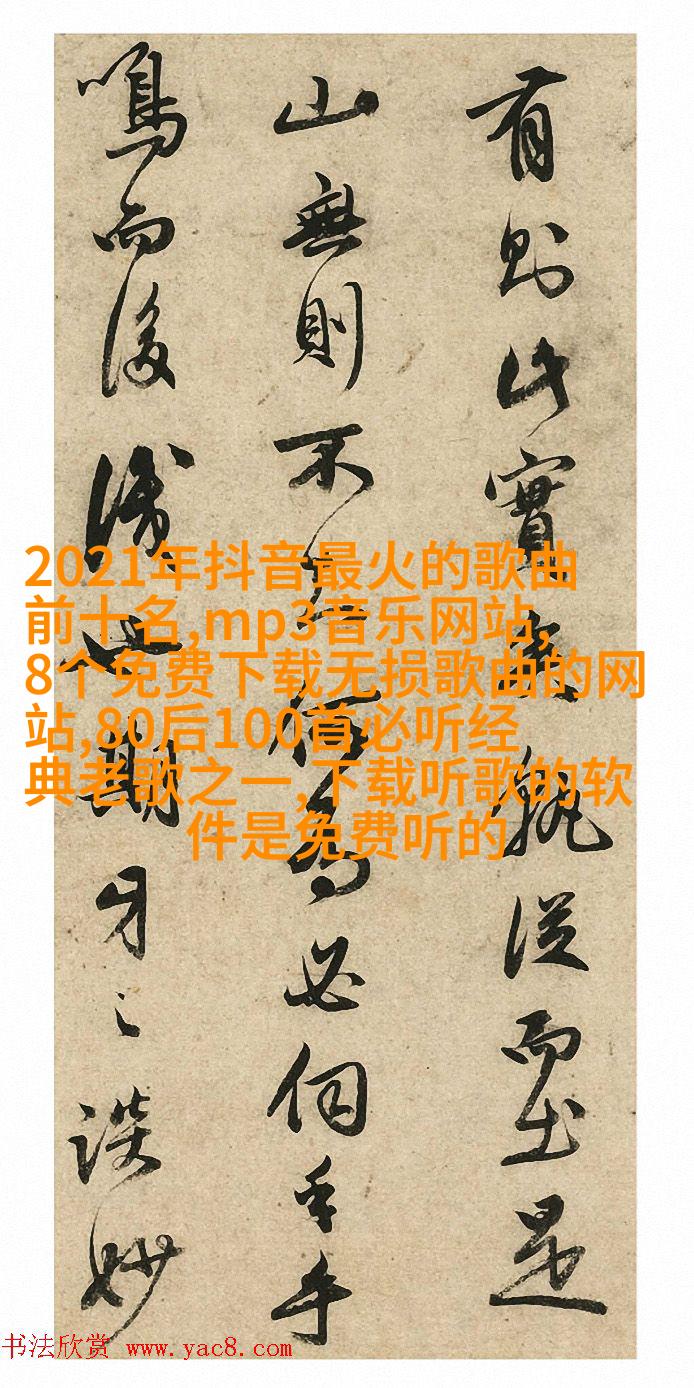 有則此實孰從而出是
山無則不為必伺手手
鳴而後期牙之談妙
2021年抖音最火的歌曲
前十名,mp3音乐网站,
8个免费下载无损歌曲的网
站,80后100首必听经
典老歌之一,下载听歌的软
件是免费听的
书法欣赏 www.yac8.com